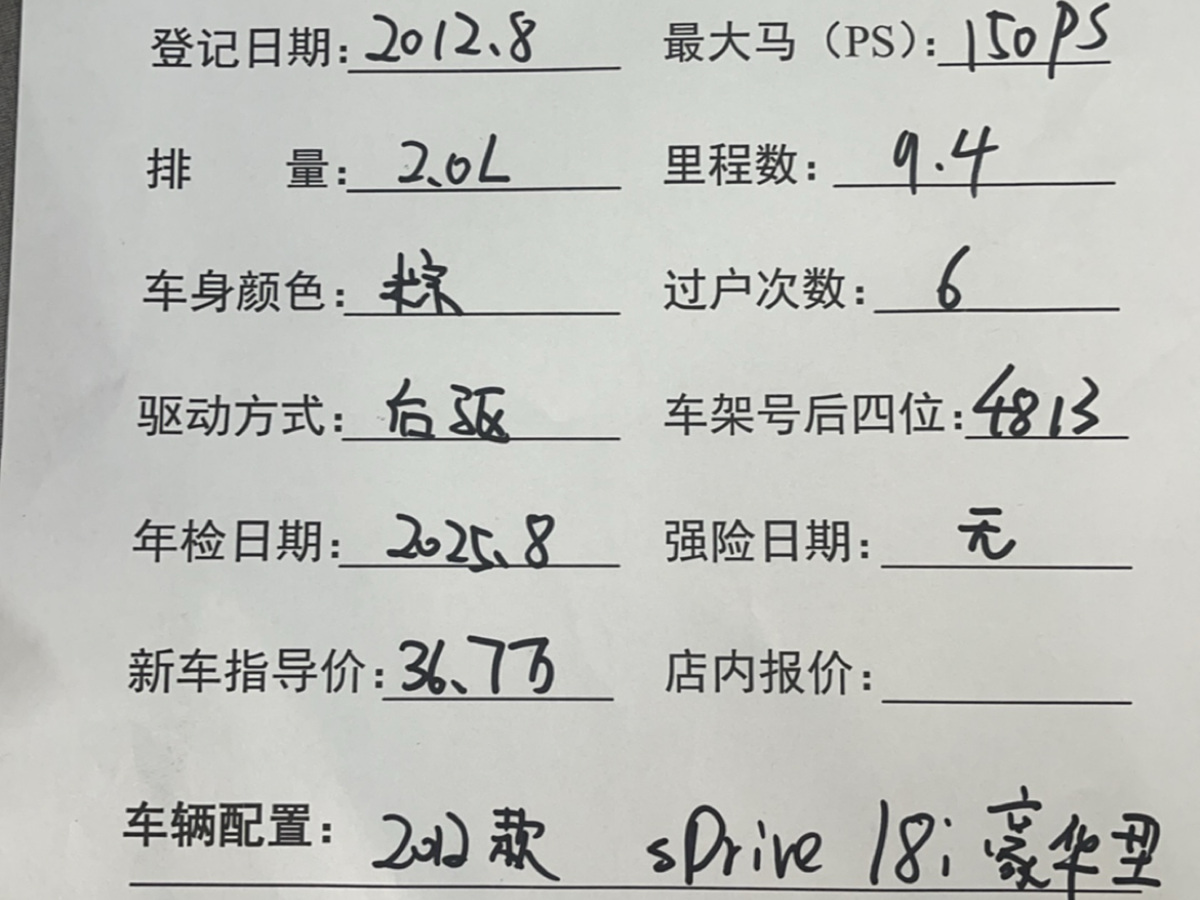 登记日期：2012.8 最大马（PS）：150PS
排 量：2.0L 里程数：9.4
车身颜色：棕 过户次数：6
驱动方式：后驱 车架号后四位：4813
年检日期：2025.8 强险日期：无
新车指导价：36.7万 店内报价：
车辆配置：2012款 sDrive 18i 豪华型